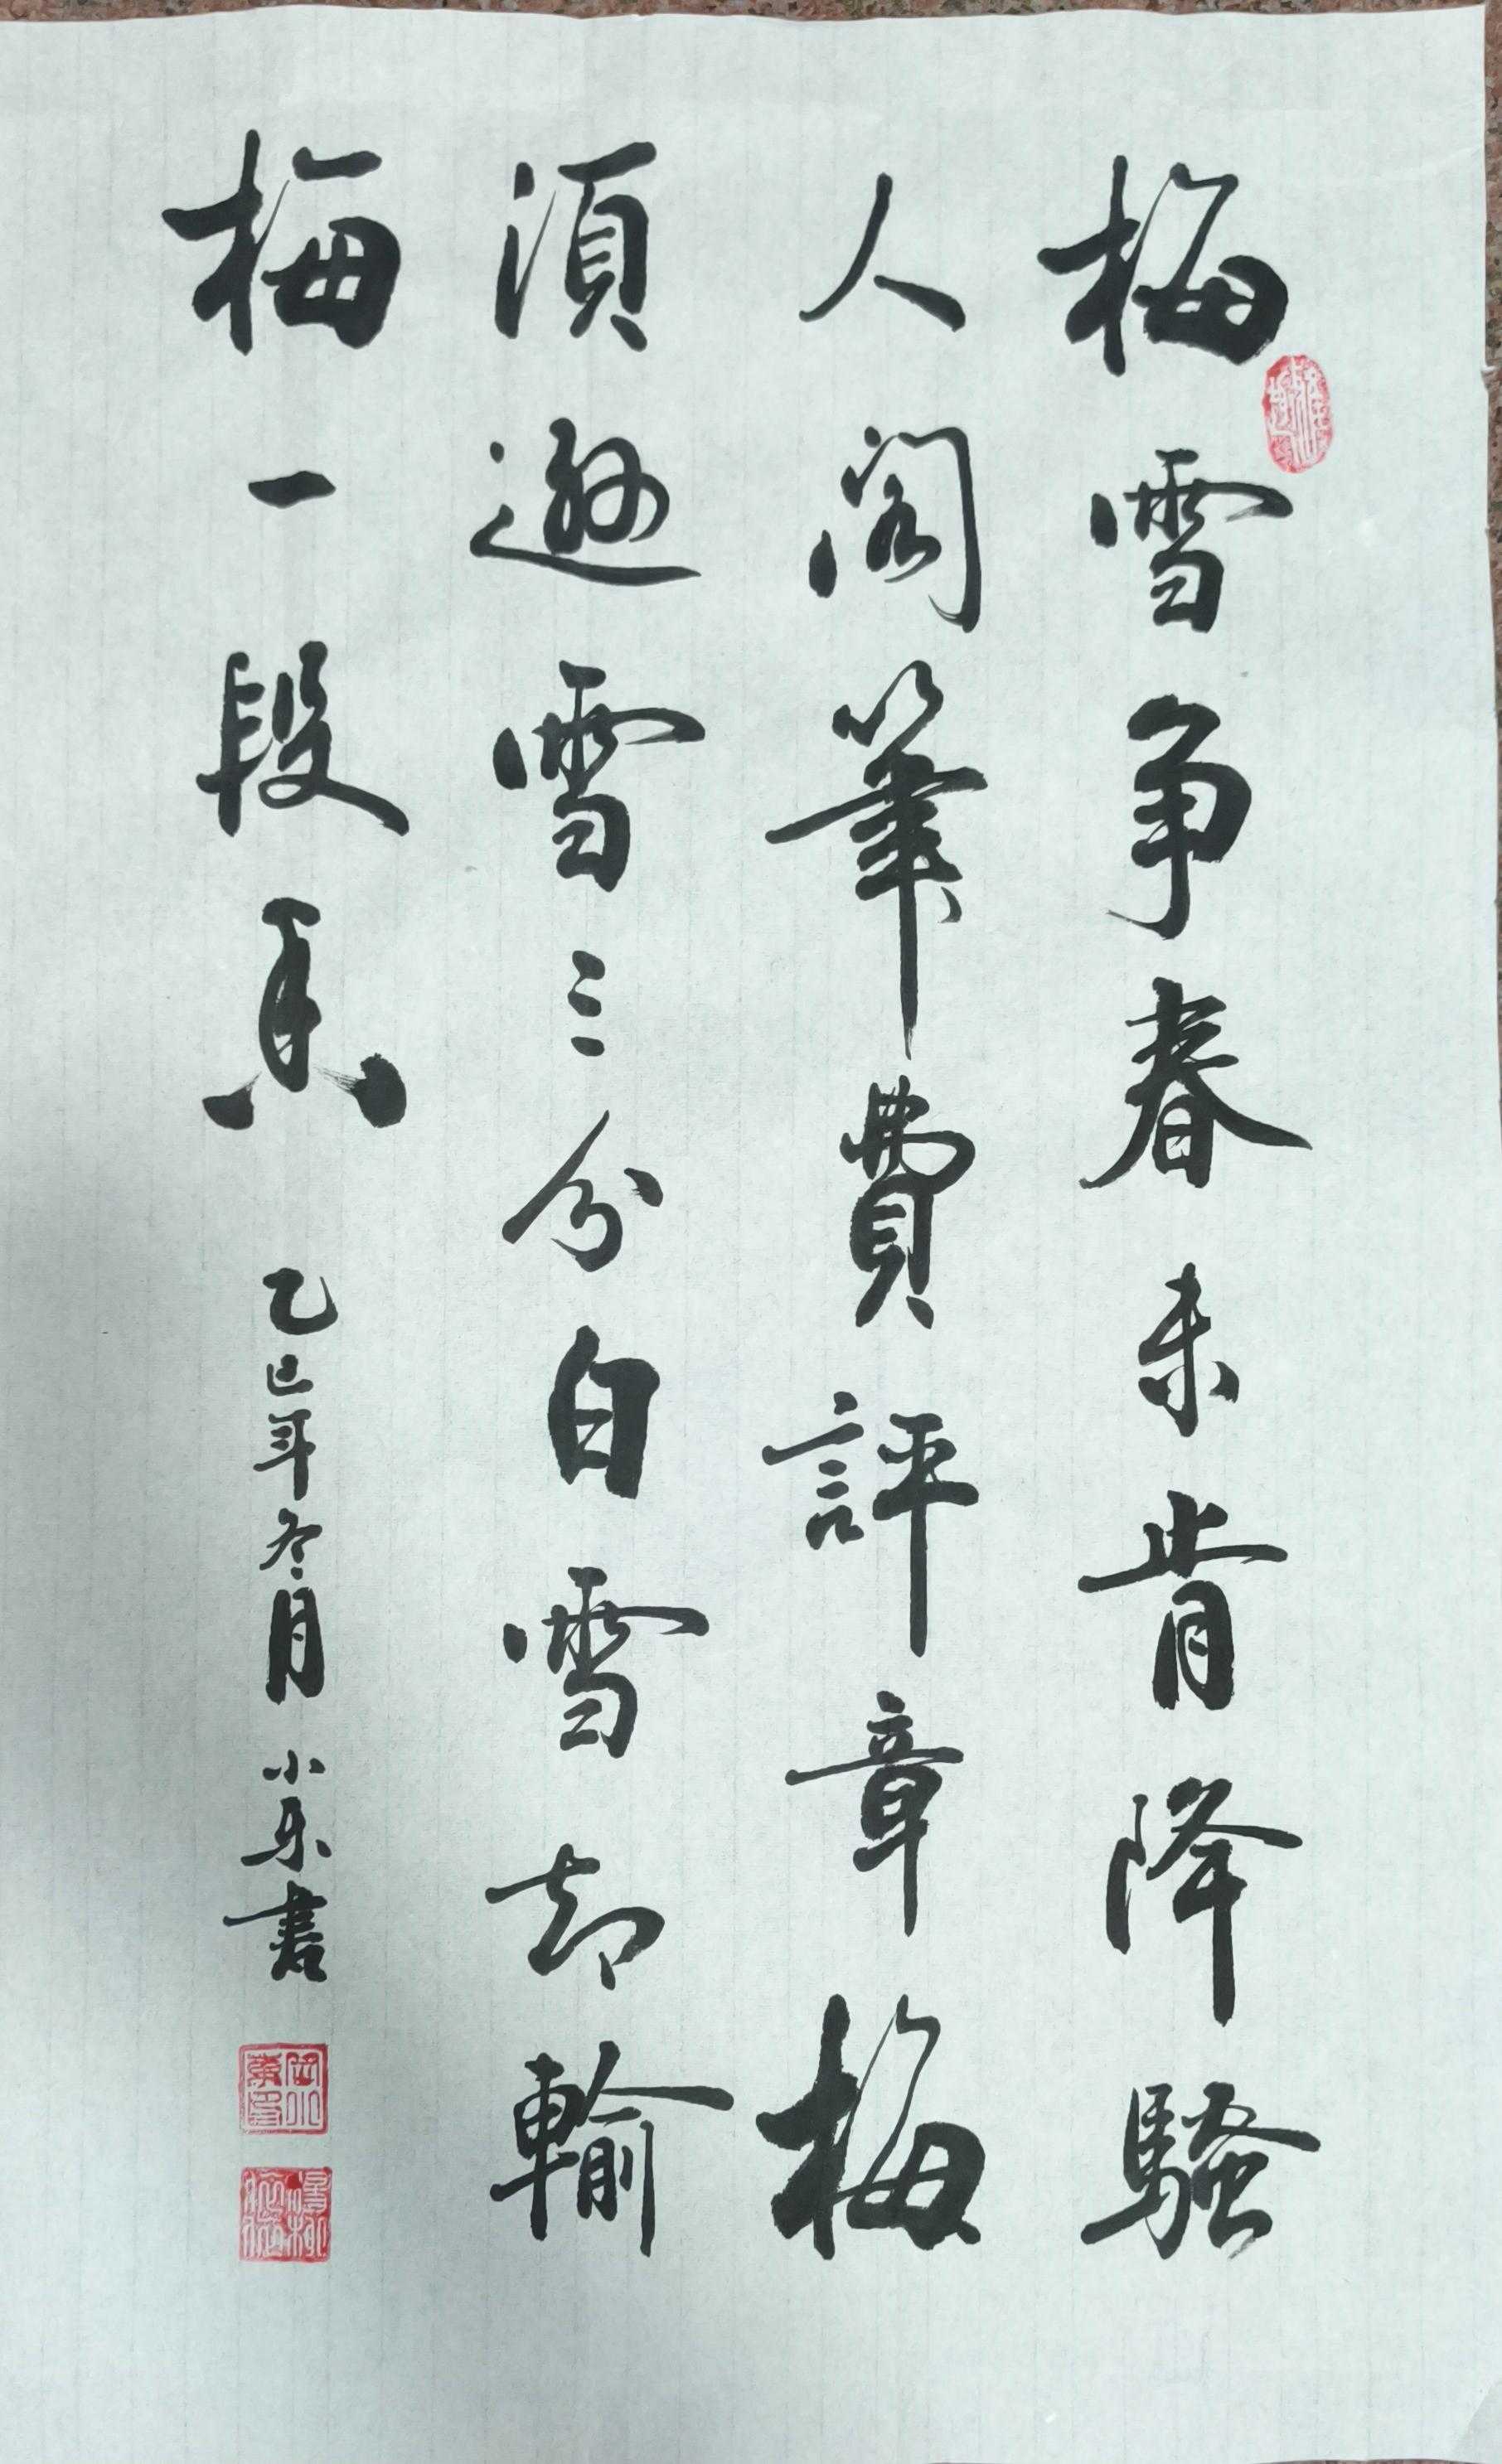 梅雪争春未肯降騷
人阁筆費評章梅
須遜雪三分白雪却輸
梅一段香
乙巳年冬月 小乐書